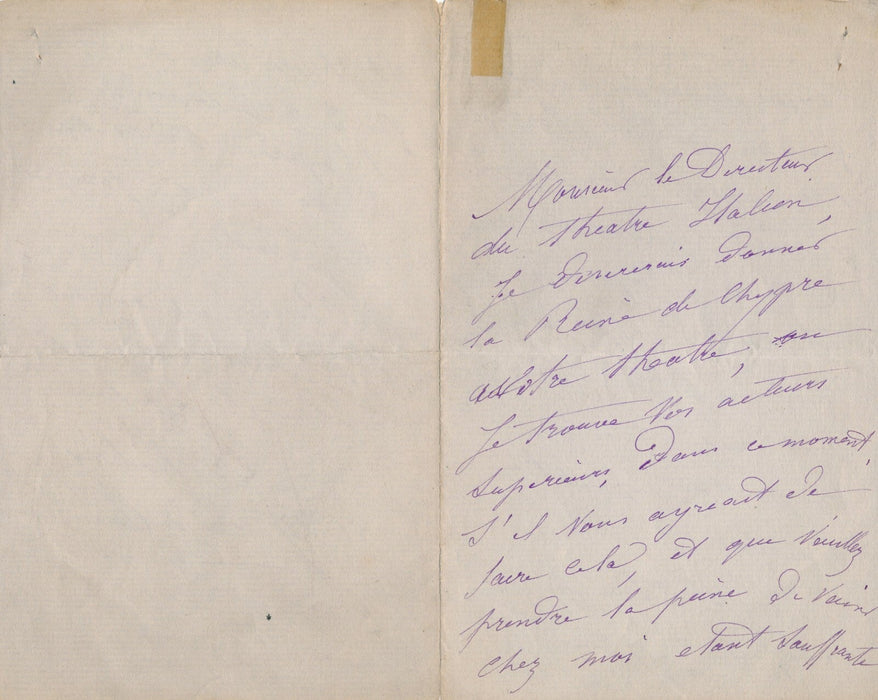 Monsieur le Directeur
du theatre Italien,
Je desirerais donner
la Reine de Chypre
a votre theatre,
Je trouve vos acteurs
superieurs, dans ce moment,
s'il vous agreait de
faire cela, et que veuillez
prendre la peine de venir
chez moi etant souffrante